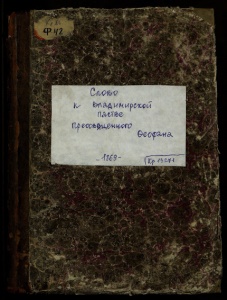 Слово
к владимирской
пастве
преосвященного
Феофана
- 1869 -